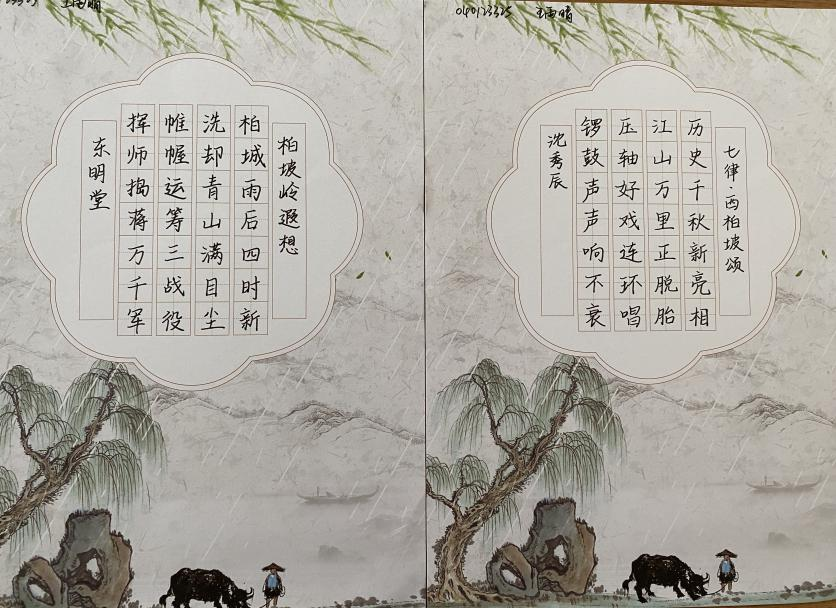 王雨晴
柏坡岭遐想
柏城雨后四时新
洗却青山满目尘
帷幄运筹三战役
挥师捣蒋万千军
东明堂
040123325 王雨晴
七律·西柏坡颂
历史千秋新亮相
江山万里正脱胎
压轴好戏连环唱
锣鼓声声响不衰
沈秀辰